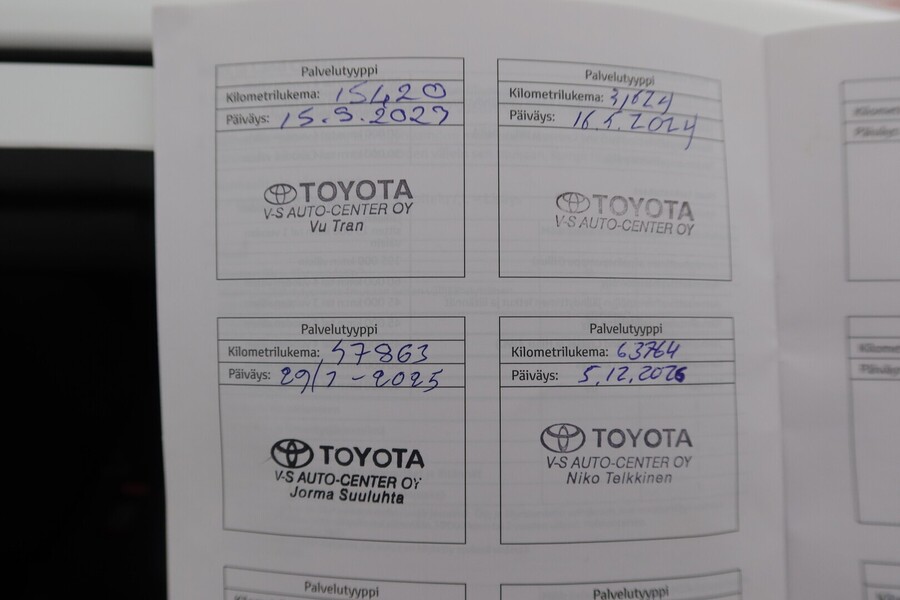 Palvelutyyppi
Kilometrilukema: 15420
Päiväys: 15.9.2023
TOYOTA
V-S AUTO-CENTER OY
Vu Tran
Palvelutyyppi
Kilometrilukema: 31624
Päiväys: 16.5.2024
TOYOTA
V-S AUTO-CENTER OY
Palvelutyyppi
Kilometrilukema: 47863
Päiväys: 29/1-2025
TOYOTA
V-S AUTO-CENTER OY
Jorma Suuluhta
Palvelutyyppi
Kilometrilukema: 63764
Päiväys: 5.12.2025
TOYOTA
V-S AUTO-CENTER OY
Niko Telkkinen
Palvelutyyppi
Palvelutyyppi